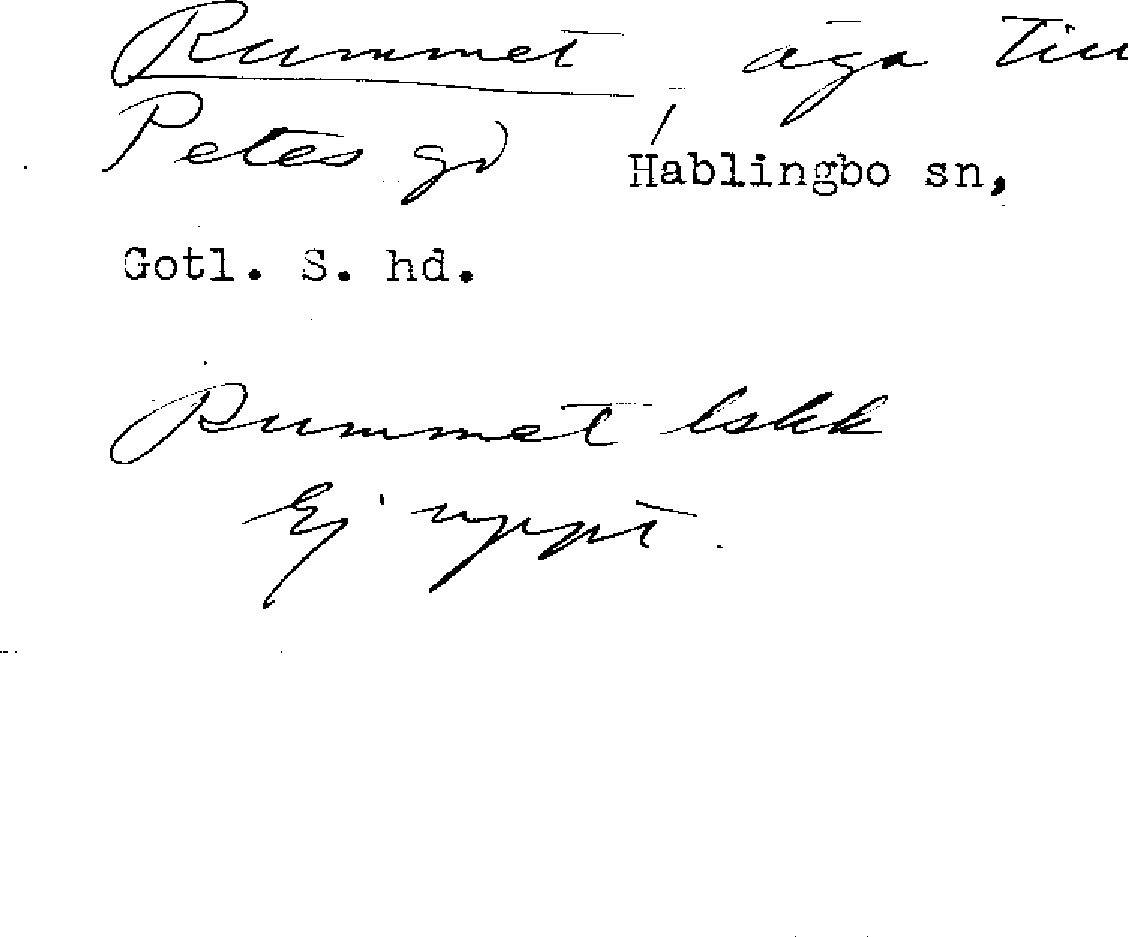 Rummet, äga till
Petes gd Hablingbo sn,
Gotl. S. hd.
Rummet lskk
Ej uppt.